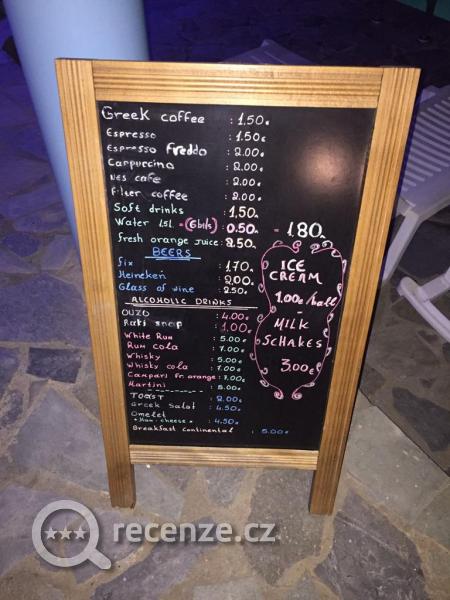 Greek coffee : 1.50€
Espresso : 1.50€
Espresso Freddo : 2.00€
Cappuccino : 2.00€
Nes cafe : 2.00€
Filter coffee : 2.00€
Soft drinks : 1,50
Water 1.5L = (6btls) : 0.50 = 1.80
fresh orange juice : 2.50
BEERS
fix : 1,70
Heineken : 2,00
Glass of wine : 2.50€
ALCOHOLIC DRINKS
OUZO : 4.00€
Raki snap : 1.00€
White Rum : 5.00€
Rum cola : 7.00€
Whisky : 5.00€
Whisky cola : 7.00€
Campari fr. orange : 7.00€
Martini : 5.00€
TOAST : 2.00€
Greek Salat : 4.50€
Omelet
+ Ham. cheese : 4.50€
Breakfast continental : 5.00€
ICE
CREAM
1.00€ ball
-
MILK
SCHAKES
3.00€
recenze.cz